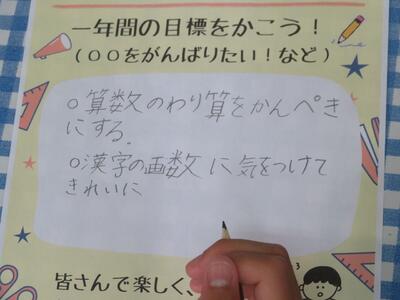 一年間の目標をかこう！
（○○をがんばりたい！など）
○算数のわり算をかんぺき
にする。
○漢字の画数に気をつけて
きれいに
皆さんで楽しく、